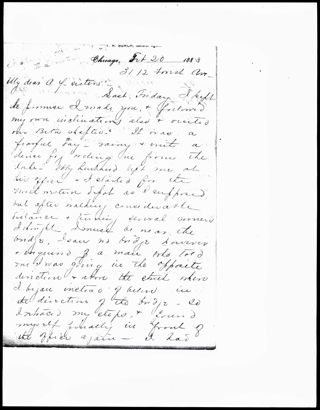 Chicago, Feb 20 1883
3112 Forest Ave.
My dear A. Y. sisters:
Last Friday I kept
the promise I made you, & followed
my own inclinations also & visited
our Beta chapter. It was a
fearful day - rainy & with a
dense fog rolling in from the
lake. My husband left me at
his office & I started for the
depot as I supposed
but after walking considerable
distance & turning several corners
I thought I must be near the
bridge. I saw no bridge however
& inquired of a man who told
me I was going in the opposite
direction & above the street where
I began instead of below in
the direction of the bridge - So
I retraced my steps & found
myself finally in front of
the office again - I had